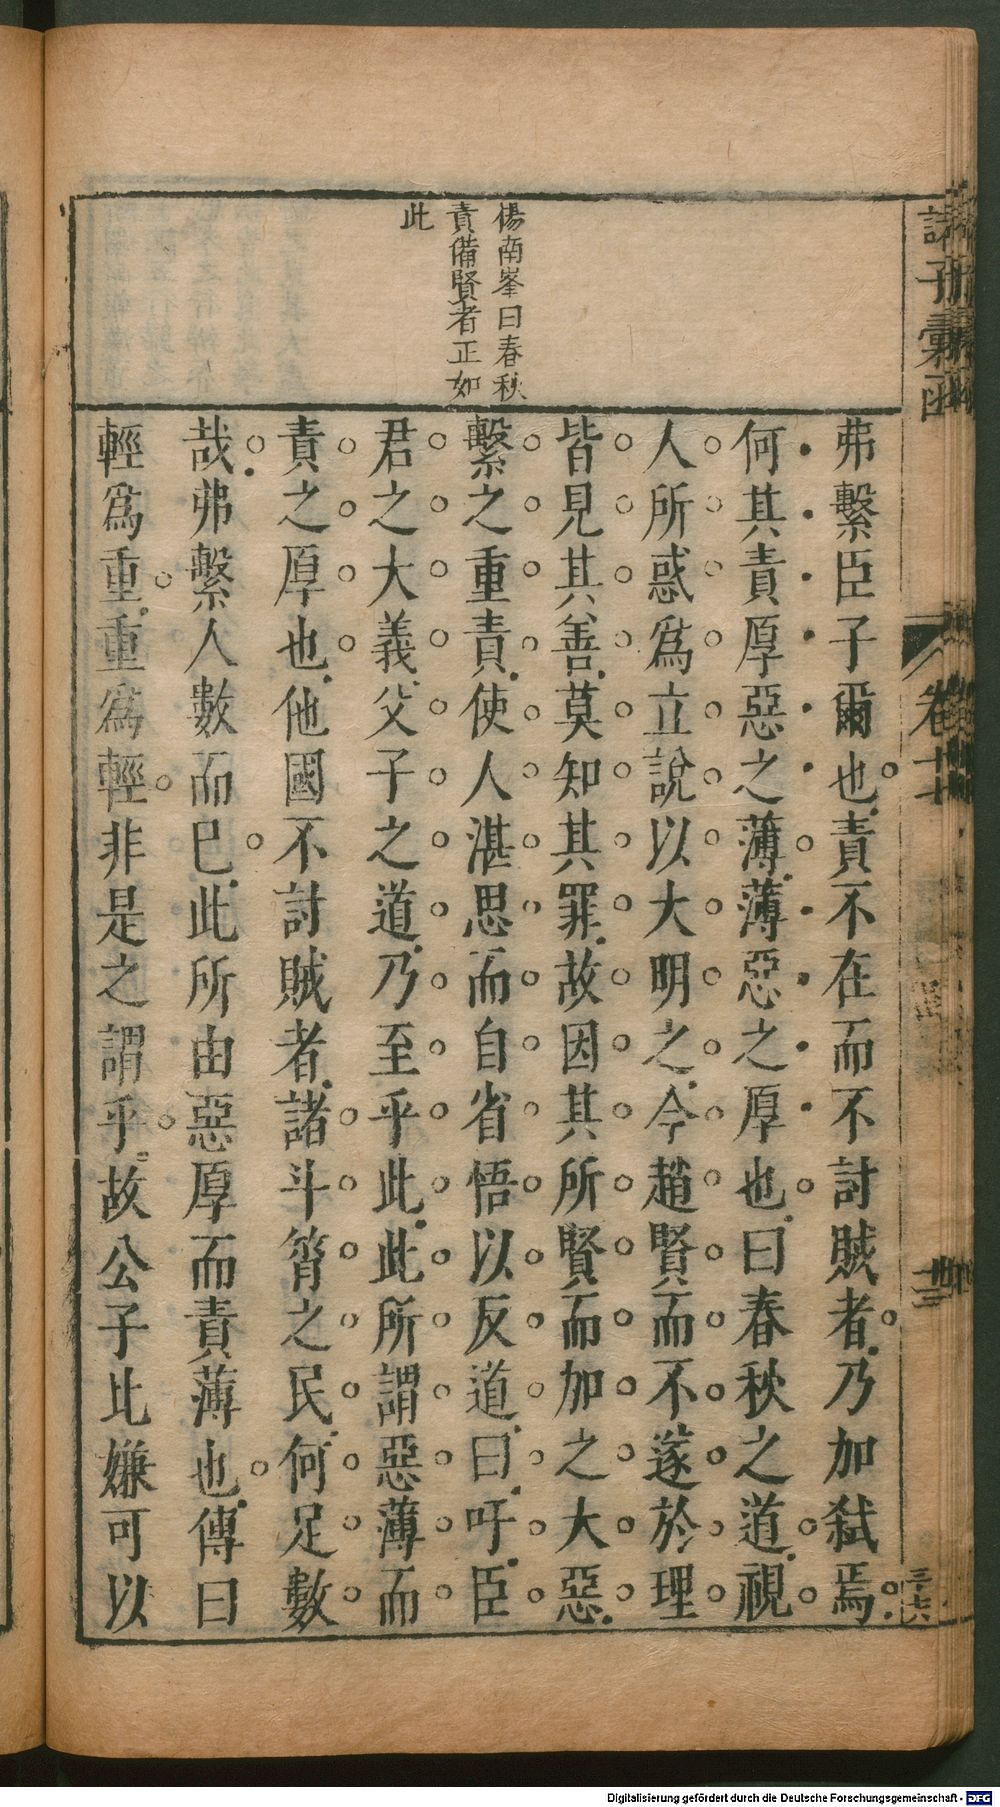 諸子彙函
卷十七
三十六
楊南峯曰春秋
責備賢者正如
此
弗繫臣子爾也責不在而不討賊者乃加弑焉
何其責厚惡之薄薄惡之厚也曰春秋之道視
人所惑爲立說以大明之今趙賢而不遂於理
皆見其善莫知其罪故因其所賢而加之大惡
繫之重責使人湛思而自省悟以反道曰吁臣
君之大義父子之道乃至乎此此所謂惡薄而
責之厚也他國不討賊者諸斗筲之民何足數
哉弗繫人數而巳此所由惡厚而責薄也傳曰
輕爲重重爲輕非是之謂乎故公子比嫌可以
Digitalisierung gefördert durch die Deutsche Forschungsgemeinschaft - DFG